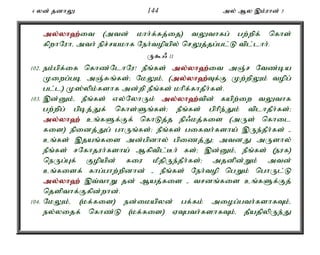 4 லன் தனாலூ 144 அல் ஆல இம்ரான் 3
அல்லாஹ்வை (அவன் மார்க்கத்தை) வலுவாகப் பற்றிக் கொள்
கிறாரோ, அவர் நிச்சயமாக நேர்வழியில் செலுத்தப்பட்டு விட்டார்.
102. நம்பிக்கை கொண்டோரே! நீங்கள் அல்லாஹ்வை அஞ்ச வேண்டிய
முறைப்படி அஞ்சுங்கள்; மேலும், (அல்லாஹ்வுக்கு முற்றிலும் வழிப்
பட்ட) முஸ்லிம்களாக அன்றி நீங்கள் மரிக்காதீர்கள்.
103. இன்னும், நீங்கள் எல்லோரும் அல்லாஹ்வின் கயிற்றை வலுவாக
பற்றிப் பிடித்துக் கொள்ளுங்கள்; நீங்கள் பிரிந்தும் விடாதீர்கள்;
அல்லாஹ் உங்களுக்குக் கொடுத்த நிஃமத்களை (அருள் கொடை
களை) நினைத்துப் பாருங்கள்: நீங்கள் பகைவர்களாய் இருந்தீர்கள் -
உங்கள் இதயங்களை அன்பினால் பிணைத்து; அவனது அருளால்
நீங்கள் சகோதரர்களாய் ஆகிவிட்டீர் கள்; இன்னும், நீங்கள் (நரக)
நெருப்புக் குழியின் கரை மீதிருந்தீர்கள்; அதனின்றும் அவன்
உங்களைக் காப்பாற்றினான் - நீங்கள் நேர்வழி பெறும் பொருட்டு
அல்லாஹ் இவ்வாறு தன் ஆயத்களை - வசனங்களை உங்களுக்குத்
தெளிவாக்குகின்றான்.
104. மேலும், (மக்களை) நன்மையின் பக்கம் அழைப்பவர்களாகவும்,
நல்லதைக் கொண்டு (மக்களை) ஏவுபவர்களாகவும், தீயதிலிருந்து